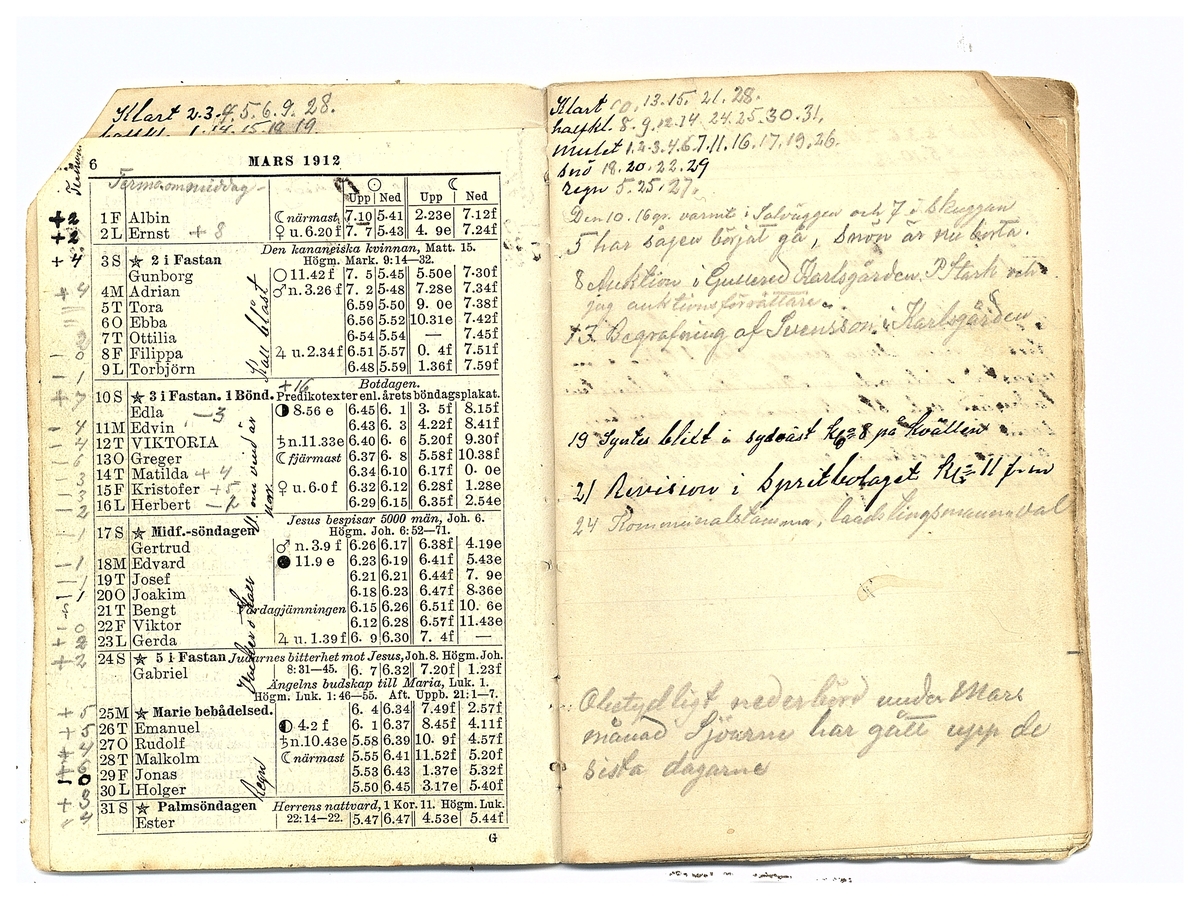 Klart 2.3.4.5.6.9.28.
halfkl. 1.14.15.18.19.
6 MARS 1912
Upp Ned Upp Ned
1 F Albin ☾ närmast 7.10 5.41 2.23e 7.12f
2 L Ernst + 8 ♀ u. 6.20 f 7. 7 5.43 4. 9e 7.24f
Den kananeiska kvinnan, Matt. 15.
3 S ★ 2 i Fastan Högm. Mark. 9:14—32.
Gunborg ○ 11.42 f 7. 5 5.45 5.50e 7.30f
4 M Adrian ♂ n. 3.26 f 7. 2 5.48 7.28e 7.34f
5 T Tora 6.59 5.50 9. 0e 7.38f
6 O Ebba 6.56 5.52 10.31e 7.42f
7 T Ottilia 6.54 5.54 — 7.45f
8 F Filippa ♃ u. 2.34 f 6.51 5.57 0. 4f 7.51f
9 L Torbjörn 6.48 5.59 1.36f 7.59f
Kall blåst
+16 Botdagen.
10 S ★ 3 i Fastan. 1 Bönd. Predikotexter enl. årets böndagsplakat.
Edla – 3 ◑ 8.56 e 6.45 6. 1 3. 5f 8.15f
11 M Edvin 6.43 6. 3 4.22f 8.41f
12 T VIKTORIA ♄ n. 11.33 e 6.40 6. 6 5.20f 9.30f
13 O Greger ☾ fjärmast 6.37 6. 8 5.58f 10.38f
14 T Matilda + 4 6.34 6.10 6.17f 0. 0e
15 F Kristofer + 5 ♀ u. 6.0 f 6.32 6.12 6.28f 1.28e
16 L Herbert – 2 6.29 6.15 6.35f 2.54e
Jesus bespisar 5000 män, Joh. 6.
17 S ★ Midf.-söndagen Högm. Joh. 6:52—71.
Gertrud ♂ n. 3.9 f 6.26 6.17 6.38f 4.19e
18 M Edvard ● 11.9 e 6.23 6.19 6.41f 5.43e
19 T Josef 6.21 6.21 6.44f 7. 9e
20 O Joakim 6.18 6.23 6.47f 8.36e
21 T Bengt Vårdagjämningen 6.15 6.26 6.51f 10. 6e
22 F Viktor 6.12 6.28 6.57f 11.43e
23 L Gerda ♃ u. 1.39 f 6. 9 6.30 7. 4f —
24 S ★ 5 i Fastan Judarnes bitterhet mot Jesus, Joh. 8. Högm. Joh.
Gabriel 8:31—45. 6. 7 6.32 7.20f 1.23f
Ängelns budskap till Maria, Luk. 1.
Högm. Luk. 1:46—55. Aft. Uppb. 21:1—7.
25 M ★ Marie bebådelsed. 6. 4 6.34 7.49f 2.57f
26 T Emanuel ◐ 4.2 f 6. 1 6.37 8.45f 4.11f
27 O Rudolf ♄ n. 10.43 e 5.58 6.39 10. 9f 4.57f
28 T Malkolm ☾ närmast 5.55 6.41 11.52f 5.20f
29 F Jonas 5.53 6.43 1.37e 5.32f
30 L Holger 5.50 6.45 3.17e 5.40f
Regn
31 S ★ Palmsöndagen Herrens nattvard, 1 Kor. 11. Högm. Luk.
Ester 22:14—22. 5.47 6.47 4.53e 5.44f
G
Klart 10.13.15.21.28.
halfkl. 8.9.12.14.24.25.30.31.
mulet 1.2.3.4.6.7.11.16.17.19.26.
snö 18.20.22.29
regn 5.25.27.
Den 10. 16 gr. varmt i Solväggen och 7 i skuggan
5 har sågen börjat gå, snön är nu borta.
8 Auktion i Gullered Karlsgården. P Stark och
jag auktionsförrättare.
17. Begrafning af Svensson i Karlsgården
19 Syntes blixt i sydväst kl 8 på kvällen
21 Revision i Spritbolaget kl 11 f m
24 Kommunalstämma, landstingsmannaval
Obetydligt nederbörd under Mars
månad Sjöarne har gått upp de
sista dagarne